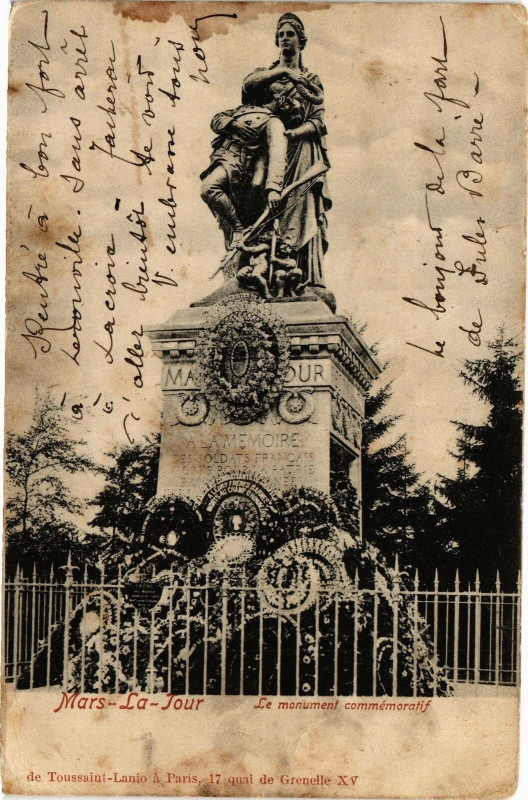 Rentré à bon port
à Lerouville. Sans arrêt
à Lacroix
j'aller bientôt te voir
V. embrasse tous
Le bonjour de la part
de Jules Barré -
MA OUR
A LA MEMOIRE
DES SOLDATS FRANÇAIS
Mars-La-Tour
Le monument commémoratif
de Toussaint-Lanio à Paris, 17 quai de Grenelle XV